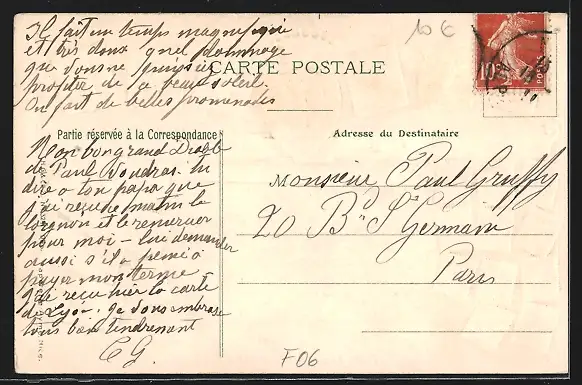 Il fait un temps magnifique
et très doux quel dommage
que vous ne puissiez
profiter de ce beau soleil.
On fait de belles promenades
10 €
10
POSTES
CARTE POSTALE
Partie réservée à la Correspondance
Adresse du Destinataire
Mon bon grand
de Paul Voudras tu
dire a ton papa que
j'ai reçu ce matin le
lorgnon et le remercier
pour moi – lui demander
aussi s'il a pensé à
payer mon terme
reçu hier la carte
de Lyon. Je vous embrasse
tous bien tendrement
C G.
Monsieur Paul Gruffy
20 Bd St Germain
Paris
F06